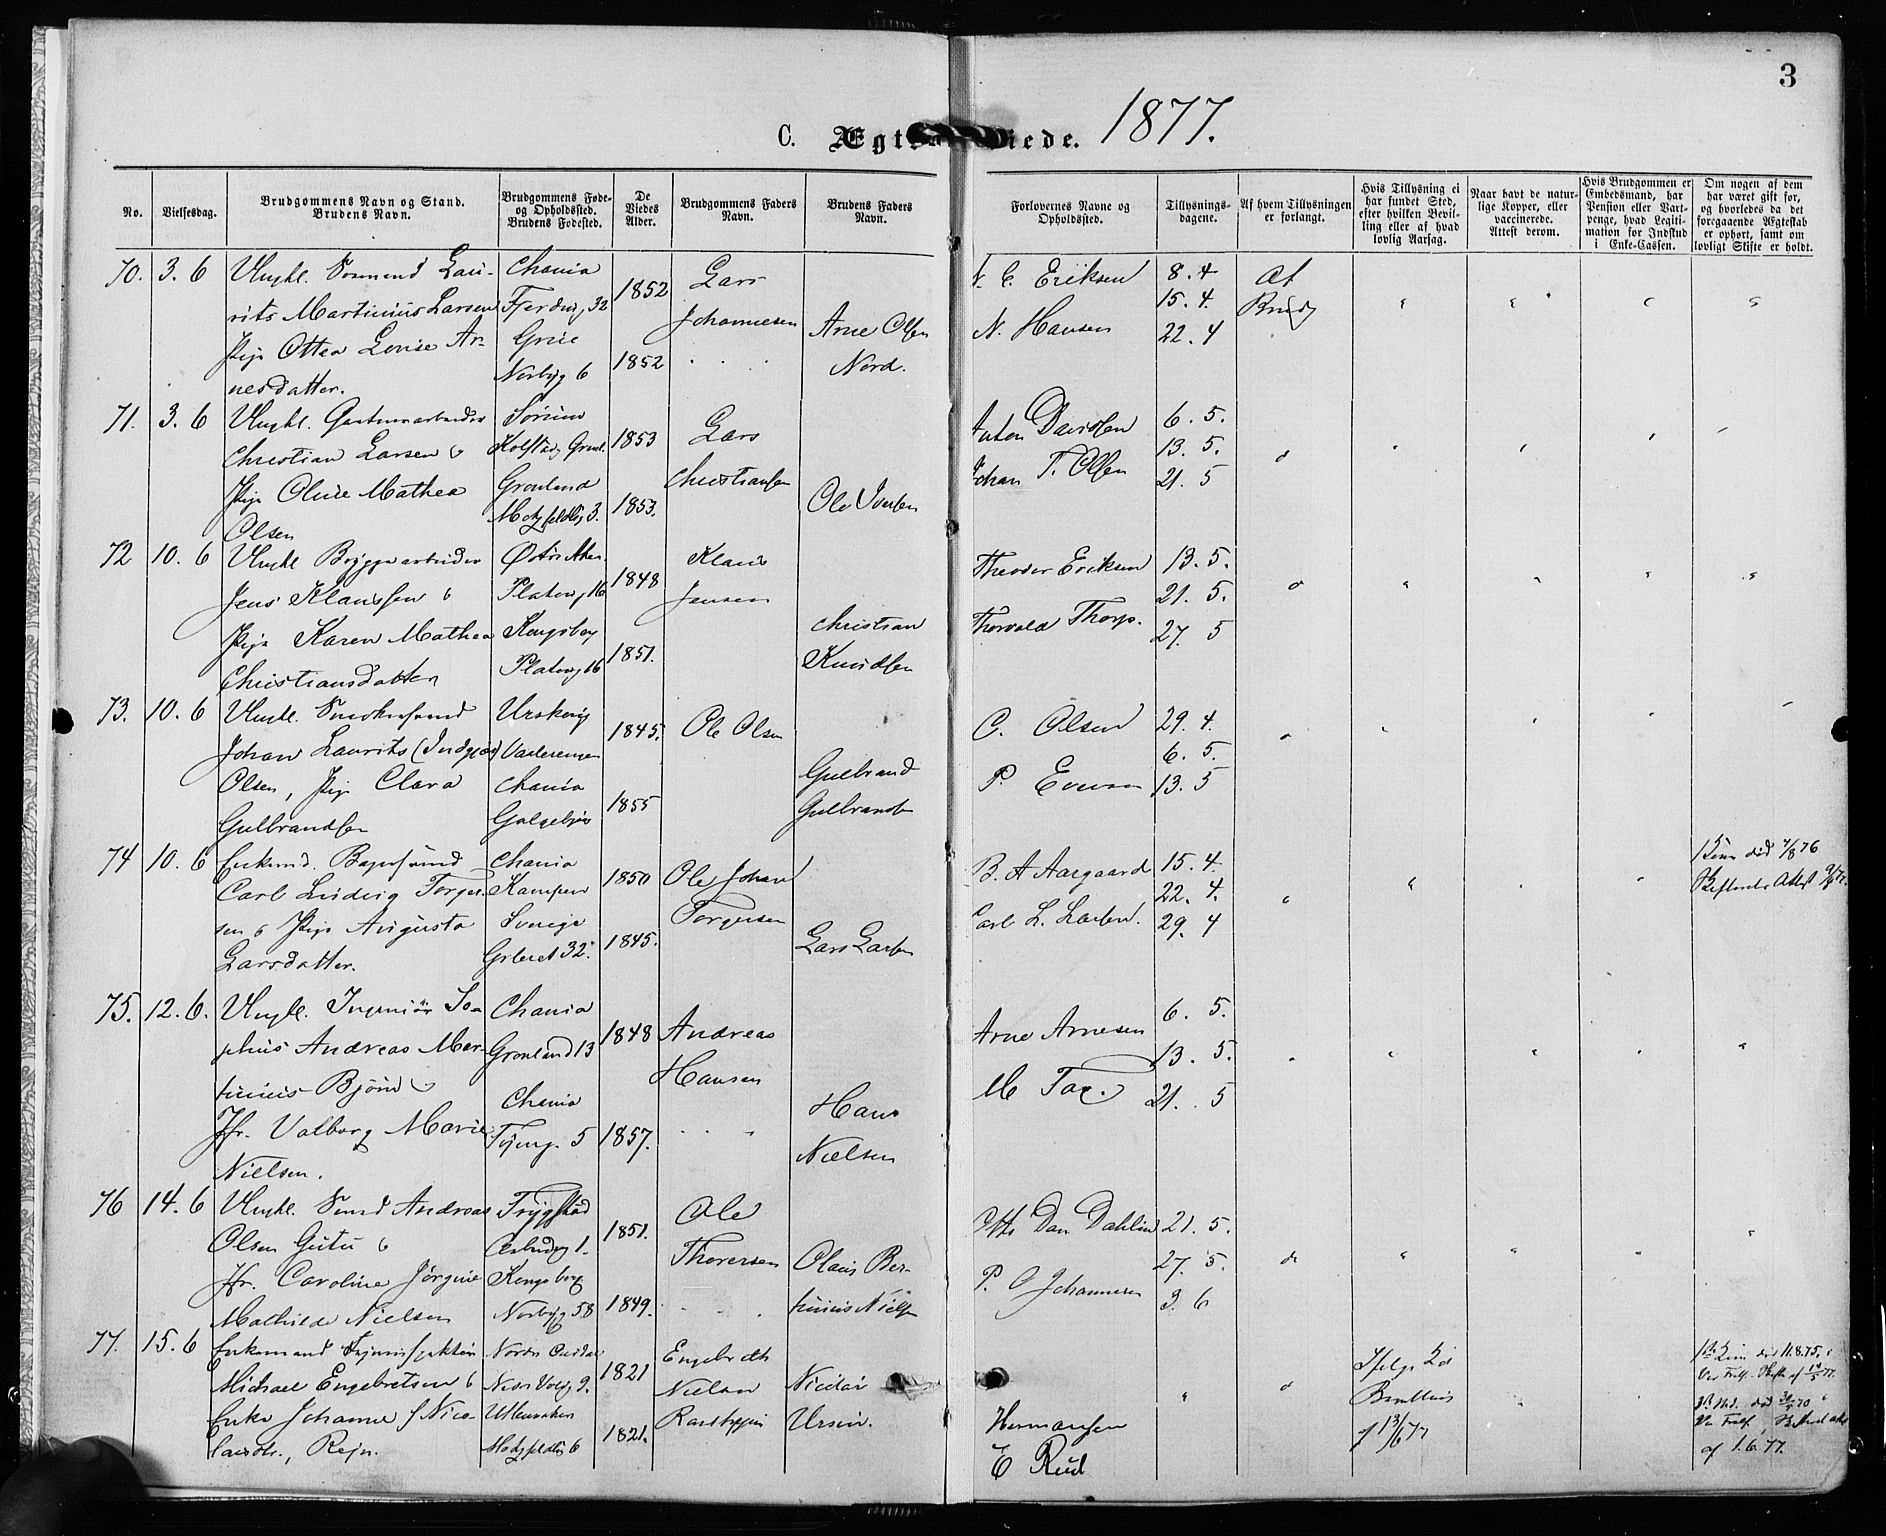 3
C. Ægte Viede. 1877.
No.
Vielsesdag.
Brudgommens Navn og Stand.
Brudens Navn.
Brudgommens Føde-
og Opholdssted.
Brudens Fødested.
De
Viedes
Alder.
Brudgommens Faders
Navn.
Brudens Faders
Navn.
Forlovernes Navne og
Opholdssted.
Tillysnings-
dagene.
Af hvem Tillysningen
er forlangt.
Hvis Tillysning ei
har fundet Sted,
efter hvilken Bevil-
ling eller af hvad
lovlig Aarsag.
Naar havt de natur-
lige Kopper, eller
vaccinerede.
Attest derom.
Hvis Brudgommen er
Embedsmand, har
Pension eller Vart-
penge, hvad Legiti-
mation for Indskud
i Enke-Cassen.
Om nogen af dem
har været gift før,
og hvorledes da det
foregaaende Ægteskab
er ophørt, samt om
lovligt Skifte er holdt.
70. 3. 6 Ungkl. Sømand Lau-
rits Martinius Larsen
Pige Ottea Lovise Ar-
nesdatter.
Chania
Fjerding 32
Grue
Norbyg 6
1852
1852
Lars
Johannesen
Arne Olsen
Nord.
N. C. Eriksen
N. Hansen
8. 4
15. 4.
22. 4
Af
Brudg
71. 3. 6 Ungkl.
Christian Larsen
Pige Oline Mathea
Olsen
Sørum
Grønland
Motzfeldtsg 3.
1853
1853.
Lars
Christiansen
Ole Iversen
Anton Davidsen
Johan T. Olsen
6. 5.
13. 5.
21. 5
do
72 10. 6 Ungkl. Bryggearbeider
Jens Klaussen
Pige Karen Mathea
Christiansdatter
Østre Aker
Platoug 16
Kongsberg
Platoug 16
1848
1851.
Klaus
Jensen
Christian
Knudsen
Theodor Eriksen
Thorvald Thorp.
13. 5.
21. 5.
27. 5
do
73. 10. 6 Ungkl. Snedkersvend
Johan Laurits
Olsen, Pige Clara
Gulbrandsen
Urskoug
Vaalerengen
Chania
Galgebjerg
1845.
1855
Ole Olsen
Gulbrand
Gulbrandsen
C. Olsen
P. Evensen
29. 4.
6. 5.
13. 5
74 10. 6 Enkemd. Bagersvend
Carl Ludvig Torger-
sen Pige Augusta
Larsdatter.
Chania
Kampen
Sverige
Grleret 32.
1850
1845.
Ole Johan
Torgersen
Lars Larsen
B. A Aargaard
Carl L. Larsen.
15. 4.
22. 4.
29. 4
død 7/8 76
Attest
75. 12. 6. Ungkl. Ingeniør So-
phus Andreas Mar-
tinius Bjørn
Jfr. Valborg Marie
Nielsen.
Chania
Grønland 13
Chania
Tøieng. 5
1848
1857.
Andreas
Hansen
Hans
Nielsen
Arne Arnesen
M Fax.
6. 5.
13. 5.
21. 5
76 14. 6 Ungkl. Andreas
Olsen Gutu
Jfr. Caroline Jørgine
Mathilde Nielsen
Trygstad
1.
Kongsberg
Norbyg 58
1851.
1849.
Ole
Thoresen
Olaus Ber-
tinius Nielsen
Dan Dahlin
P. O Johannesen
21. 5.
27. 5.
3. 6
do
77. 15. 6 Enkemand
Michael Engebretsen
Enke Johanne Nico-
laisdtr., Rejn.
Nordre
Nedre Voldg 9.
Motzfeldtsg 6
1821
1821.
Engebreth
Nielsen
Nicolai
Ursin.
Hermansen
E Rud
do
Ifølge
13/6 77
død 11.8.75.
død
af 1.6.77.